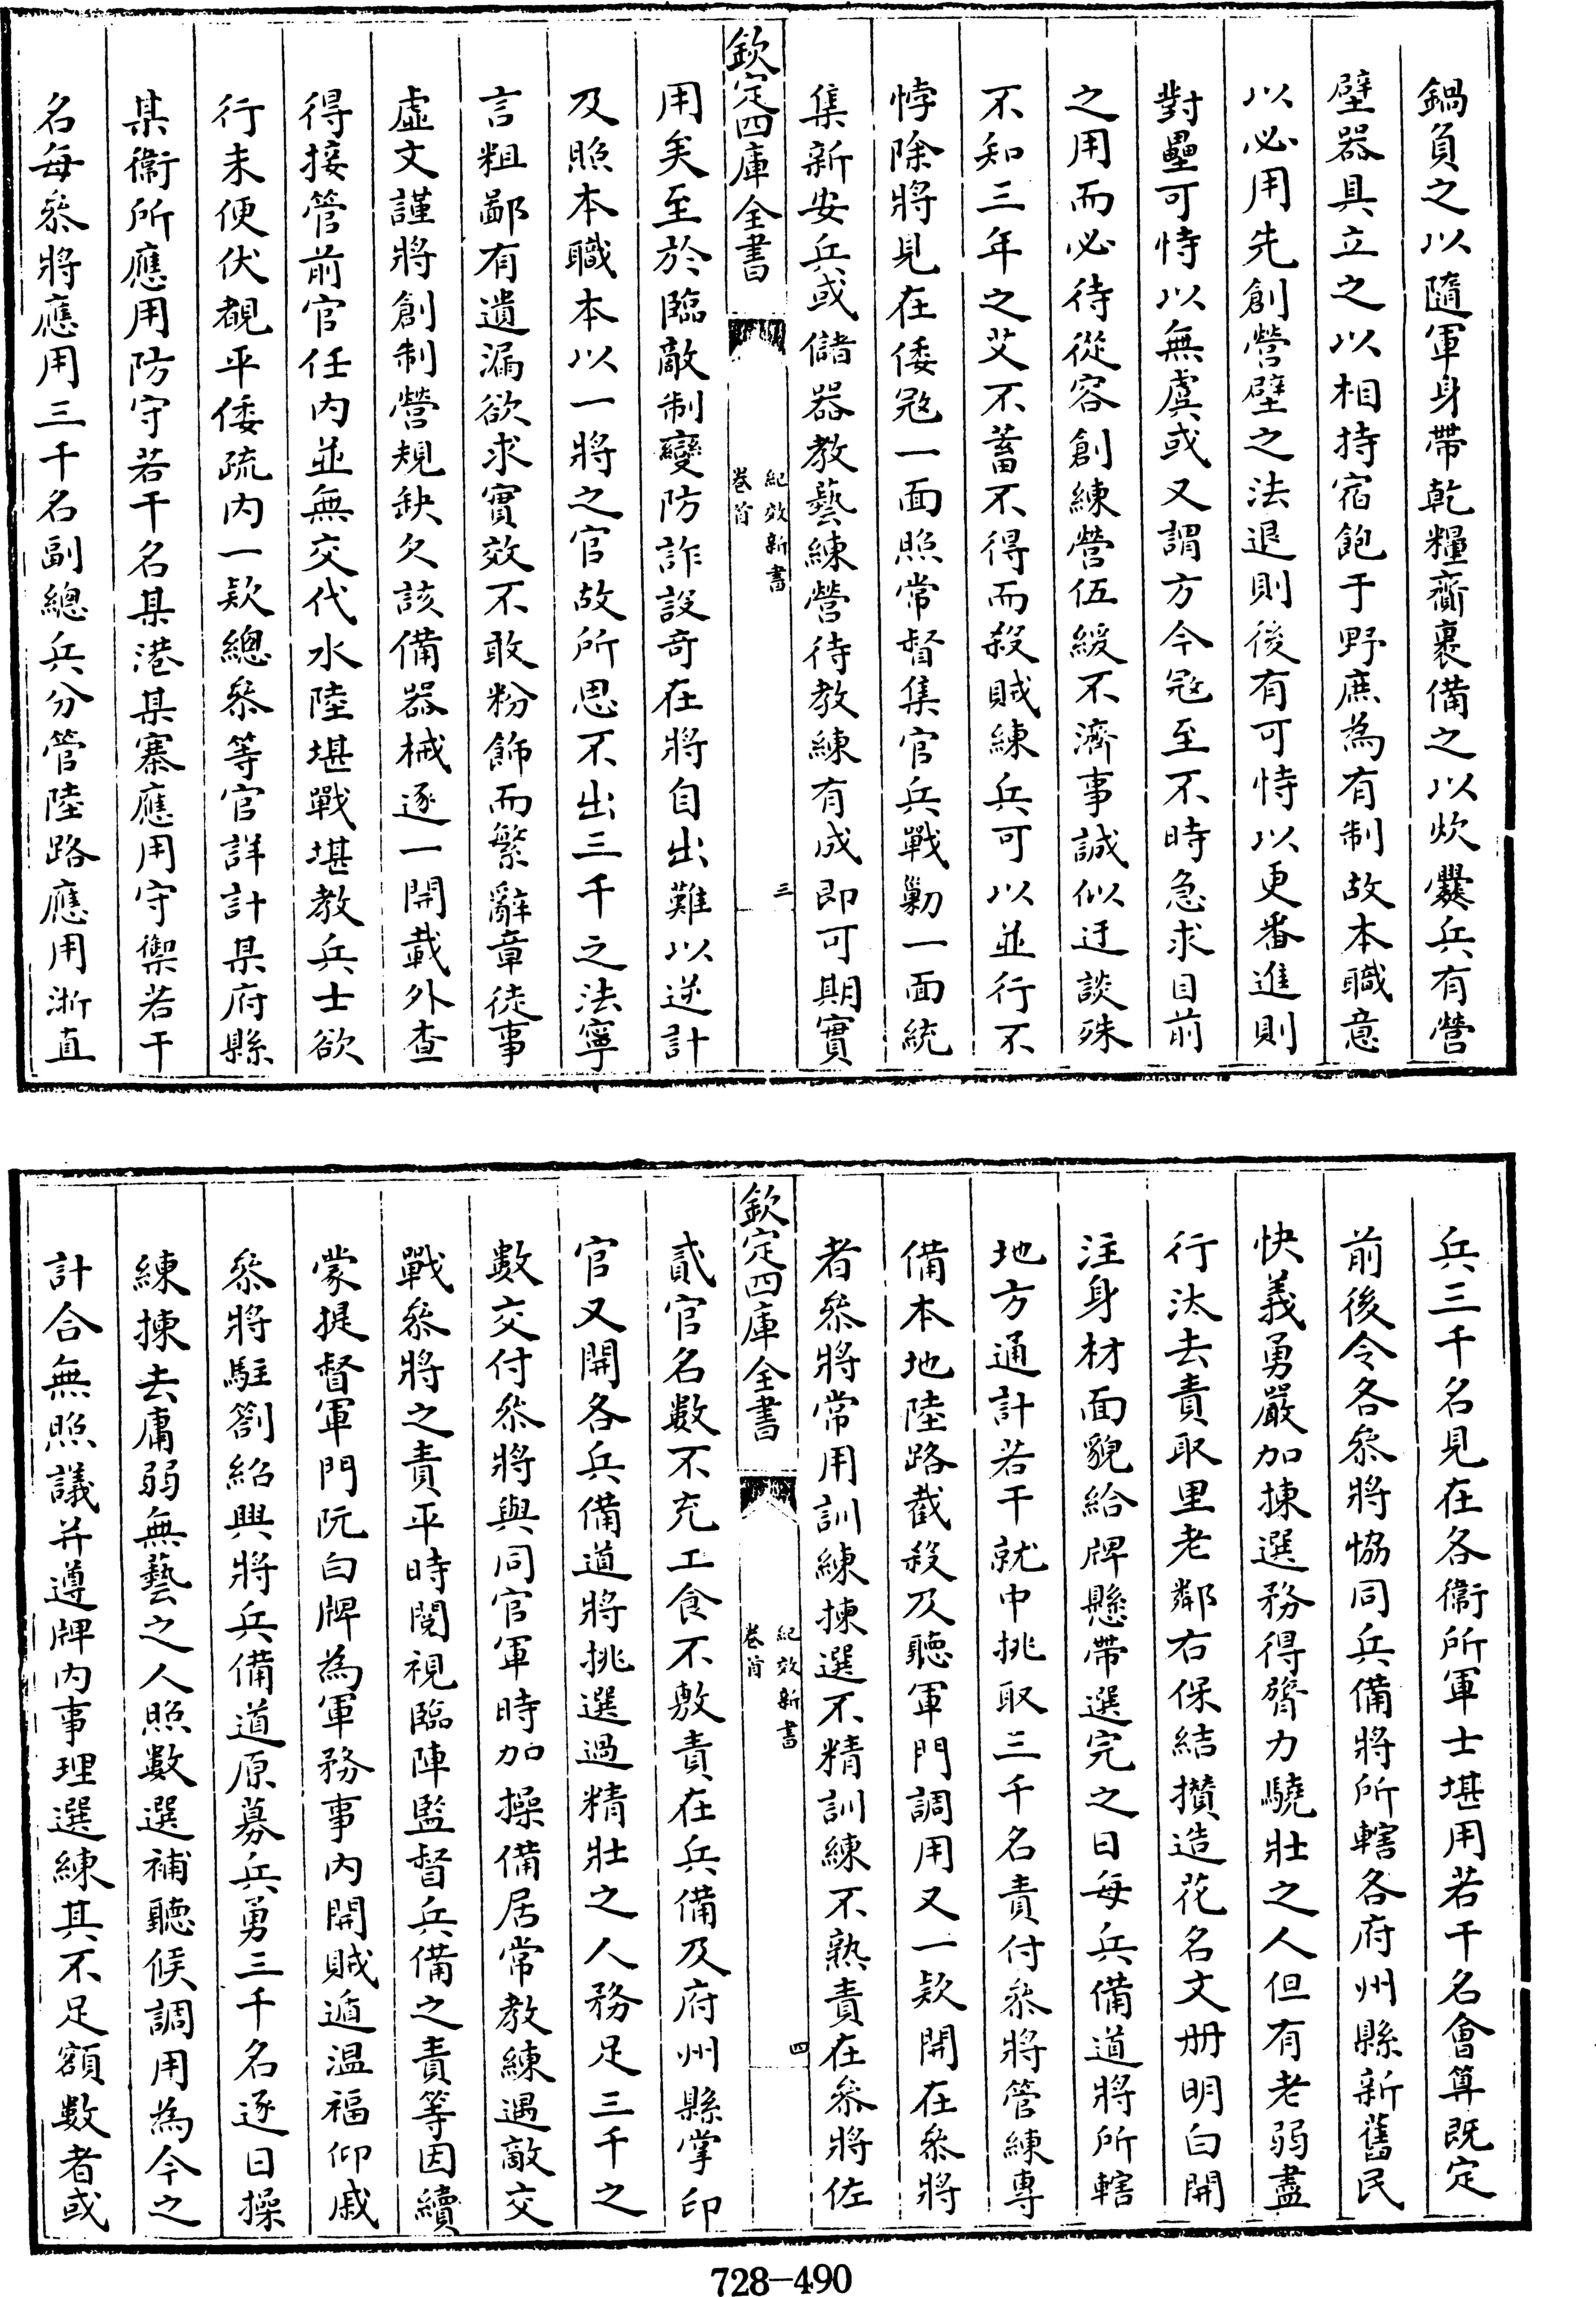 鍋負之以隨軍身帶乾糧齎裹備之以炊爨兵有營
壁器具立之以相持宿飽于野庶為有制故本職意
以必用先創營壁之法退則後有可恃以更番進則
對壘可恃以無虞或又謂方今冦至不時急求目前
之用而必待從容創練營伍緩不濟事誠似迂談殊
不知三年之艾不蓄不得而殺賊練兵可以並行不
悖除將見在倭冦一面照常督集官兵戰勦一面統
集新安兵或儲器教藝練營待教練有成即可期實
欽定四庫全書
紀效新書
卷首
三
用矣至於臨敵制變防詐設奇在將自出難以逆計
及照本職本以一將之官故所思不出三千之法寧
言粗鄙有遺漏欲求實效不敢粉飾而繁辭章徒事
虛文謹將創制營規缺欠該備器械逐一開載外查
得接管前官任內並無交代水陸堪戰堪教兵士欲
行未便伏覩平倭疏內一欵總叅等官詳計某府縣
某衛所應用防守若干名某港某寨應用守禦若干
名每叅將應用三千名副總兵分管陸路應用浙直
兵三千名見在各衛所軍士堪用若干名會算既定
前後令各叅將恊同兵備將所轄各府州縣新舊民
快義勇嚴加揀選務得膂力驍壯之人但有老弱盡
行汰去責取里老鄰右保結攢造花名文冊明白開
注身材面貌給牌懸帶選完之日每兵備道將所轄
地方通計若干就中挑取三千名責付叅將管練專
備本地陸路截殺及聽軍門調用又一欵開在叅將
者叅將常用訓練揀選不精訓練不熟責在叅將佐
欽定四庫全書
紀效新書
卷首
四
貳官名數不充工食不敷責在兵備及府州縣掌印
官又開各兵備道將挑選過精壯之人務足三千之
數交付叅將與同官軍時加操備居常教練遇敵交
戰叅將之責平時閱視臨陣監督兵備之責等因續
蒙提督軍門阮白牌為軍務事內開賊遁温福仰戚
叅將駐劄紹興將兵備道原募兵勇三千名逐日操
練揀去庸弱無藝之人照數選補聽候調用為今之
計合無照議并遵牌內事理選練其不足額數者或
728-490